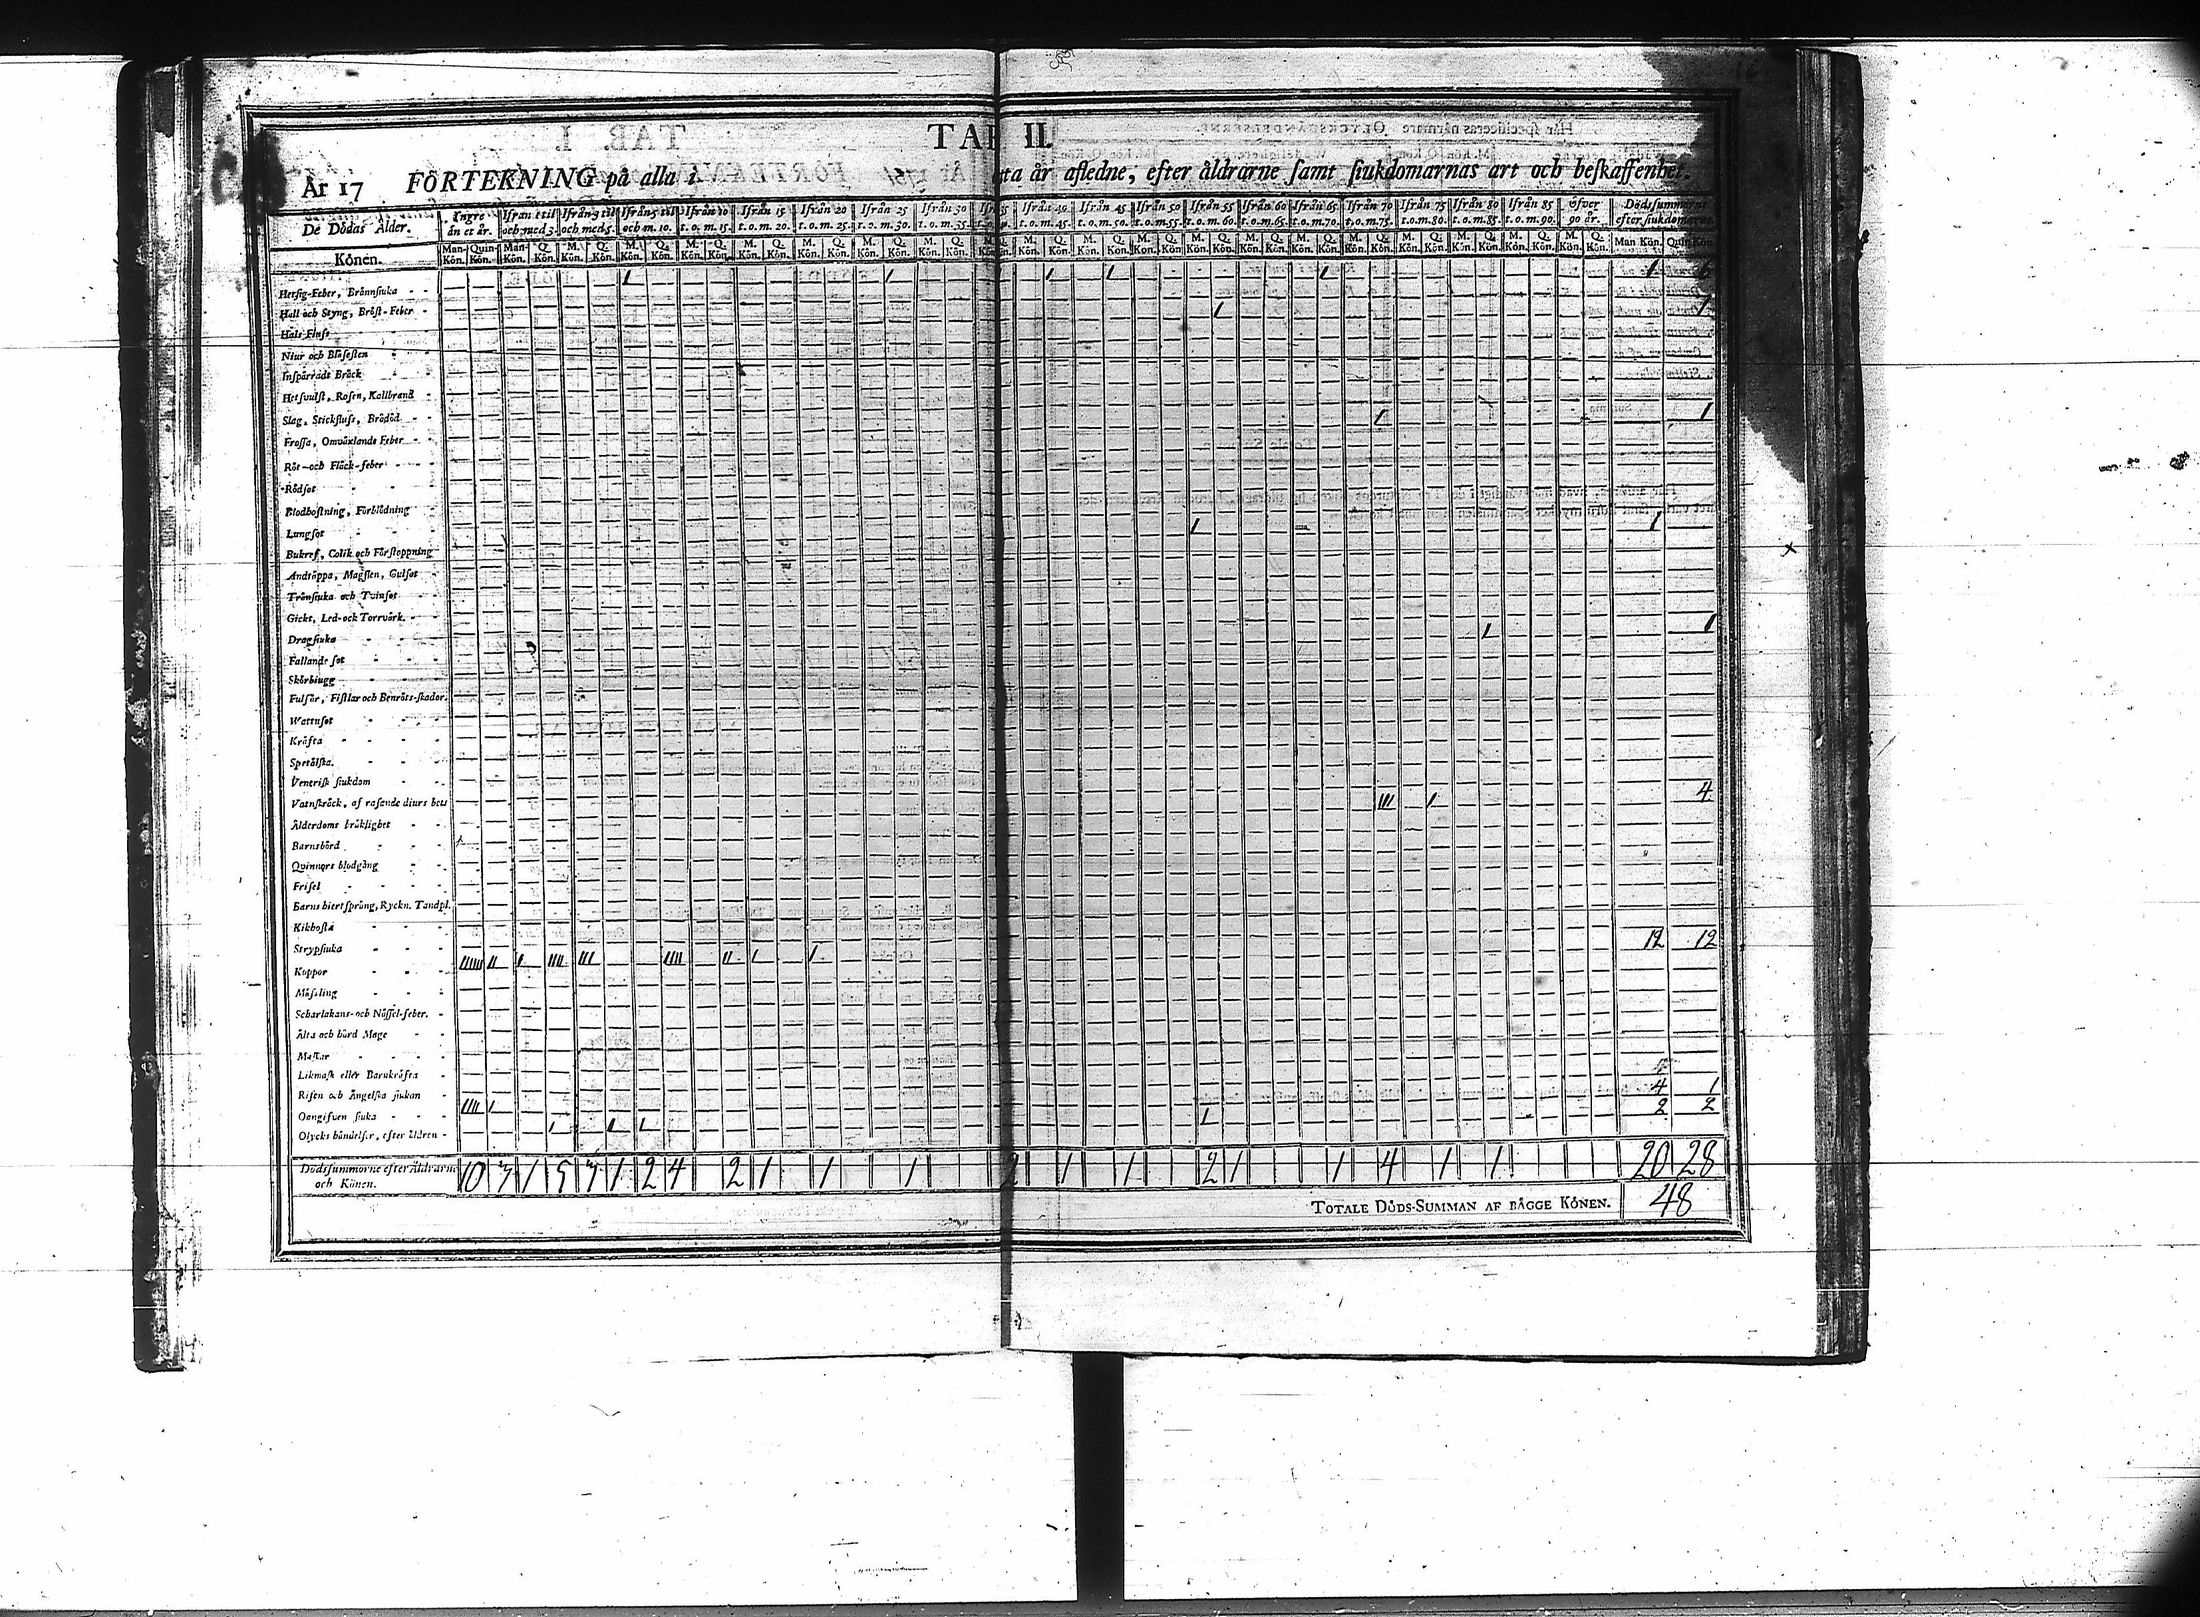 TAB II.
År 17 FÖRTEKNING på alla i ta år afledne, efter åldrarne samt siukdomarnas art och beskaffenhet.
De Dödas Ålder. Yngre än et år. Ifrån 1 til och med 3. Ifrån 3 til och med 5. Ifrån 5 til och m. 10. Ifrån 10 t. o. m. 15. Ifrån 15 t. o. m. 20. Ifrån 20 t. o. m. 25. Ifrån 25 t. o. m. 30. Ifrån 30 t. o. m. 35. Ifrån 40 t. o. m. 45. Ifrån 45 t. o. m. 50. Ifrån 50 t. o. m. 55. Ifrån 55 t. o. m. 60. Ifrån 60 t. o. m. 65. Ifrån 65 t. o. m. 70. Ifrån 70 t. o. m. 75. Ifrån 75 t. o. m. 80. Ifrån 80 t. o. m. 85. Ifrån 85 t. o. m. 90. Öfver 90 år. Dödssummorne efter siukdomarne.
Könen. Man-Kön. Quin-Kön. Man-Kön. Q. Kön. M. Kön. Q. Kön. M. Kön. Q. Kön. M. Kön. Q. Kön. M. Kön. Q. Kön. M. Kön. Q. Kön. M. Kön. Q. Kön. M. Kön. Q. Kön. Man Kön. Quin Kön.
Hetsig-Feber, Brännsiuka 1 1 1 1 1 1 6
Håll och Styng, Bröst-Feber 1 1
Hals-Fluss
Niur och Blåsesten
Inspärradt Bråck
Hetsvulst, Rosen, Kallbrand
Slag, Stickfluss, Brådöd 1 1
Frossa, Omväxlande Feber
Röt-och Fläck-feber
Rödsot
Blodhostning, Förblödning
Lungsot 1 1
Bukref, Colik och Förstoppning
Andtäppa, Magsten, Gulsot
Trånsiuka och Tvinsot
Gickt, Led-ock Torrvärk.
Dragsiuka 1 1
Fallande sot
Skörbiugg
Fulsår, Fistlar och Benröts-skador.
Wattusot
Kräfta
Spetälska.
Venerisk siukdom
Vatnskräck, af rasande diurs bett
Ålderdoms bräklighet III 1 4
Barnsbörd
Qvinnors blodgång
Frisel
Barns hiertsprång, Ryckn. Tandpl.
Kikhosta
Strypsiuka
Koppor IIIIII II 1 IIII III IIII II 1 1 12 12
Mässling
Scharlakans-och Nässel-feber.
Älta och hård Mage
Maskar
Likmask eller Barnkräfta
Risen och Ängelska siukan
Oangifven siuka IIII 1 4 1
Olycks händelser, efter åldren 1 1 1 1 2 2
Dödssummorne efter Åldrarne och Könen. 10 3 1 5 3 1 2 4 2 1 1 1 2 1 1 2 1 1 4 1 1 20 28
TOTALE DÖDS-SUMMAN AF BÅGGE KÖNEN. 48